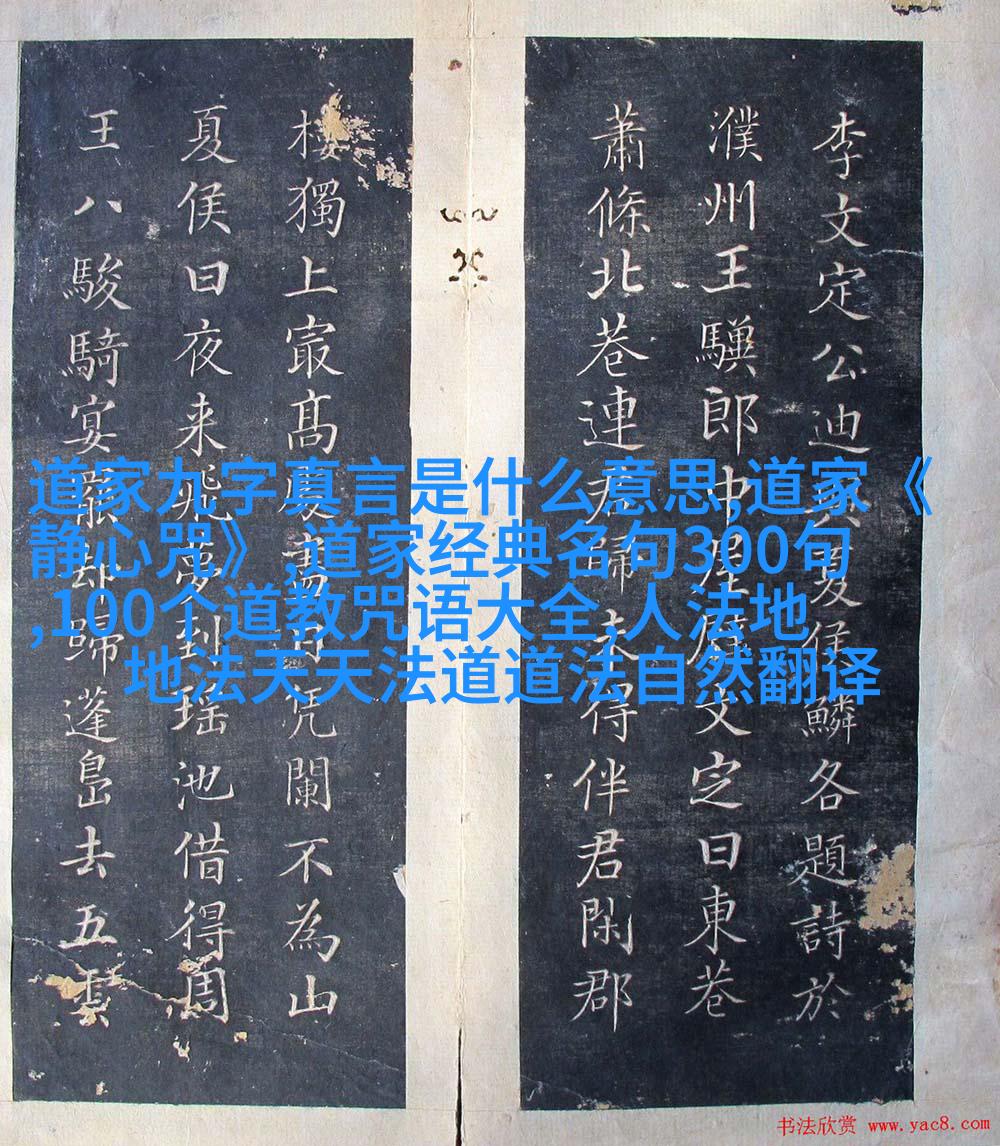 李文定公迪夏侯鱗各題詩於
濮州王驥郎中屋壁文定曰東巷
蕭條北巷連君歸未得伴君閑郡
樓獨上㝡髙處凭闌不為山
夏侯曰夜来飛夢到瑶池借得周
王八駿騎宴罷却歸蓬島去五雲
道家九字真言是什么意思,道家《
静心咒》,道家经典名句300句
,100个道教咒语大全,人法地
地法天天法道道法自然翻译
书法欣赏 www.yac8.com